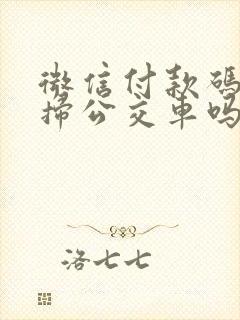 微信付款码
掃公交車吗
洛七七